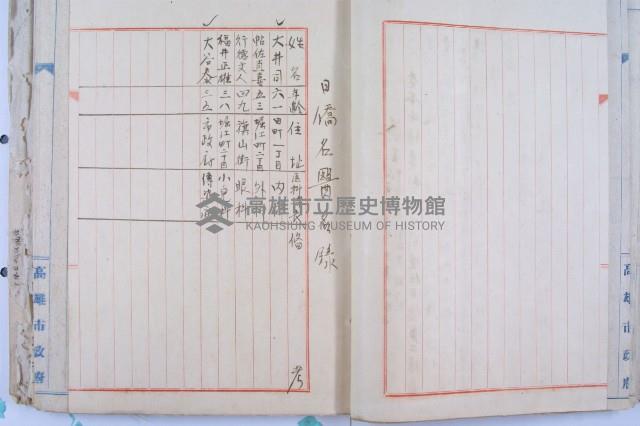 日僑名醫名錄
姓名 年齡 住址 醫科 備考
大井司 六一 田町一丁目 內
帖佐真喜 五三 堀江町二丁目 外
行德文人 四九 旗山街 眼科
福井正雄 三八 堀江町二丁目 小
大谷泰 三五 市政府
高雄市政府
高雄市政府
高雄市立歷史博物館
KAOHSIUNG MUSEUM OF HISTORY